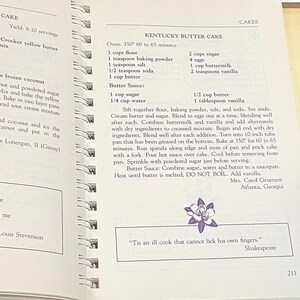 CAKE
Yield: 8-10 servings
Crocker yellow butter
frozen coconut
and powdered sugar
Mix and bake the yellow
Bake in two layer pans
coconut and the
container and put in the
Lonergan, II (Ginny)
me
Louis Stevenson
CAKES
KENTUCKY BUTTER CAKE
Oven: 350° 60 to 65 minutes
3 cups flour 2 cups sugar
1 teaspoon baking powder 4 eggs
1 teaspoon salt 1 cup buttermilk
1/2 teaspoon soda 2 teaspoons vanilla
1 cup butter
Butter Sauce:
1 cup sugar 1/2 cup butter
1/4 cup water 1 tablespoon vanilla
Sift together flour, baking powder, salt, and soda. Set aside.
Cream butter and sugar. Blend in eggs one at a time, blending well
after each. Combine buttermilk and vanilla and add alternately
with dry ingredients to creamed mixture. Begin and end with dry
ingredients. Blend well after each addition. Turn into 10-inch tube
pan that has been greased on the bottom. Bake at 350° for 60 to 65
minutes. Run spatula along edge and stem of pan and prick cake
with a fork. Pour hot sauce over cake. Cool before removing from
pan. Sprinkle with powdered sugar just before serving.
Butter Sauce: Combine sugar, water, and butter in a saucepan.
Heat until butter is melted; DO NOT BOIL. Add vanilla.
Mrs. Carol Gruenert
Atlanta, Georgia
"'Tis an ill cook that cannot lick his own fingers."
Shakespeare
211